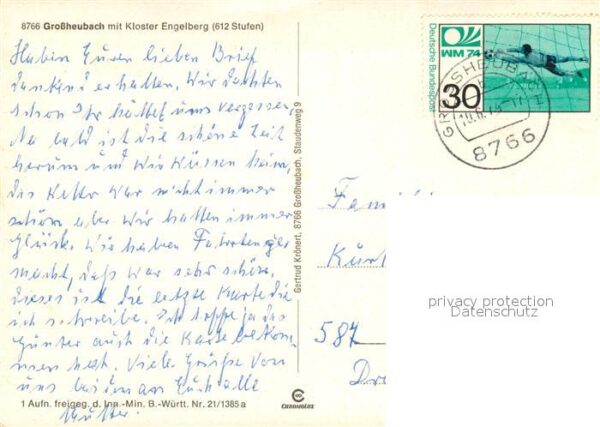 8766 Großheubach mit Kloster Engelberg (612 Stufen)
Haben Euren lieben Brief
dankend erhalten. Wir dachten
schon Ihr hättet uns vergessen.
Na bald ist die schöne Zeit
herum und wir müssen heim,
das Wetter war nicht immer
schön aber wir hatten immer
Glück. Wir haben Fahrten ge
macht, das war sehr schön.
dieses ist die letzte Karte die
ich schreibe. Ich hoffe ja das
Günter auch die Karte bekom
men hat. Viele Grüße von
uns beiden an Euch alle
Mutter.
1 Aufn. freigeg. d. Inn.-Min. B.-Württ. Nr. 21/1385 a
Gertrud Krönert, 8766 Großheubach, Staudenweg 9
CHROMOLUX
Deutsche Bundespost
WM 74
30
GROSSHEUBACH
8766
Fami
Kurt
587
privacy protection
Datenschutz